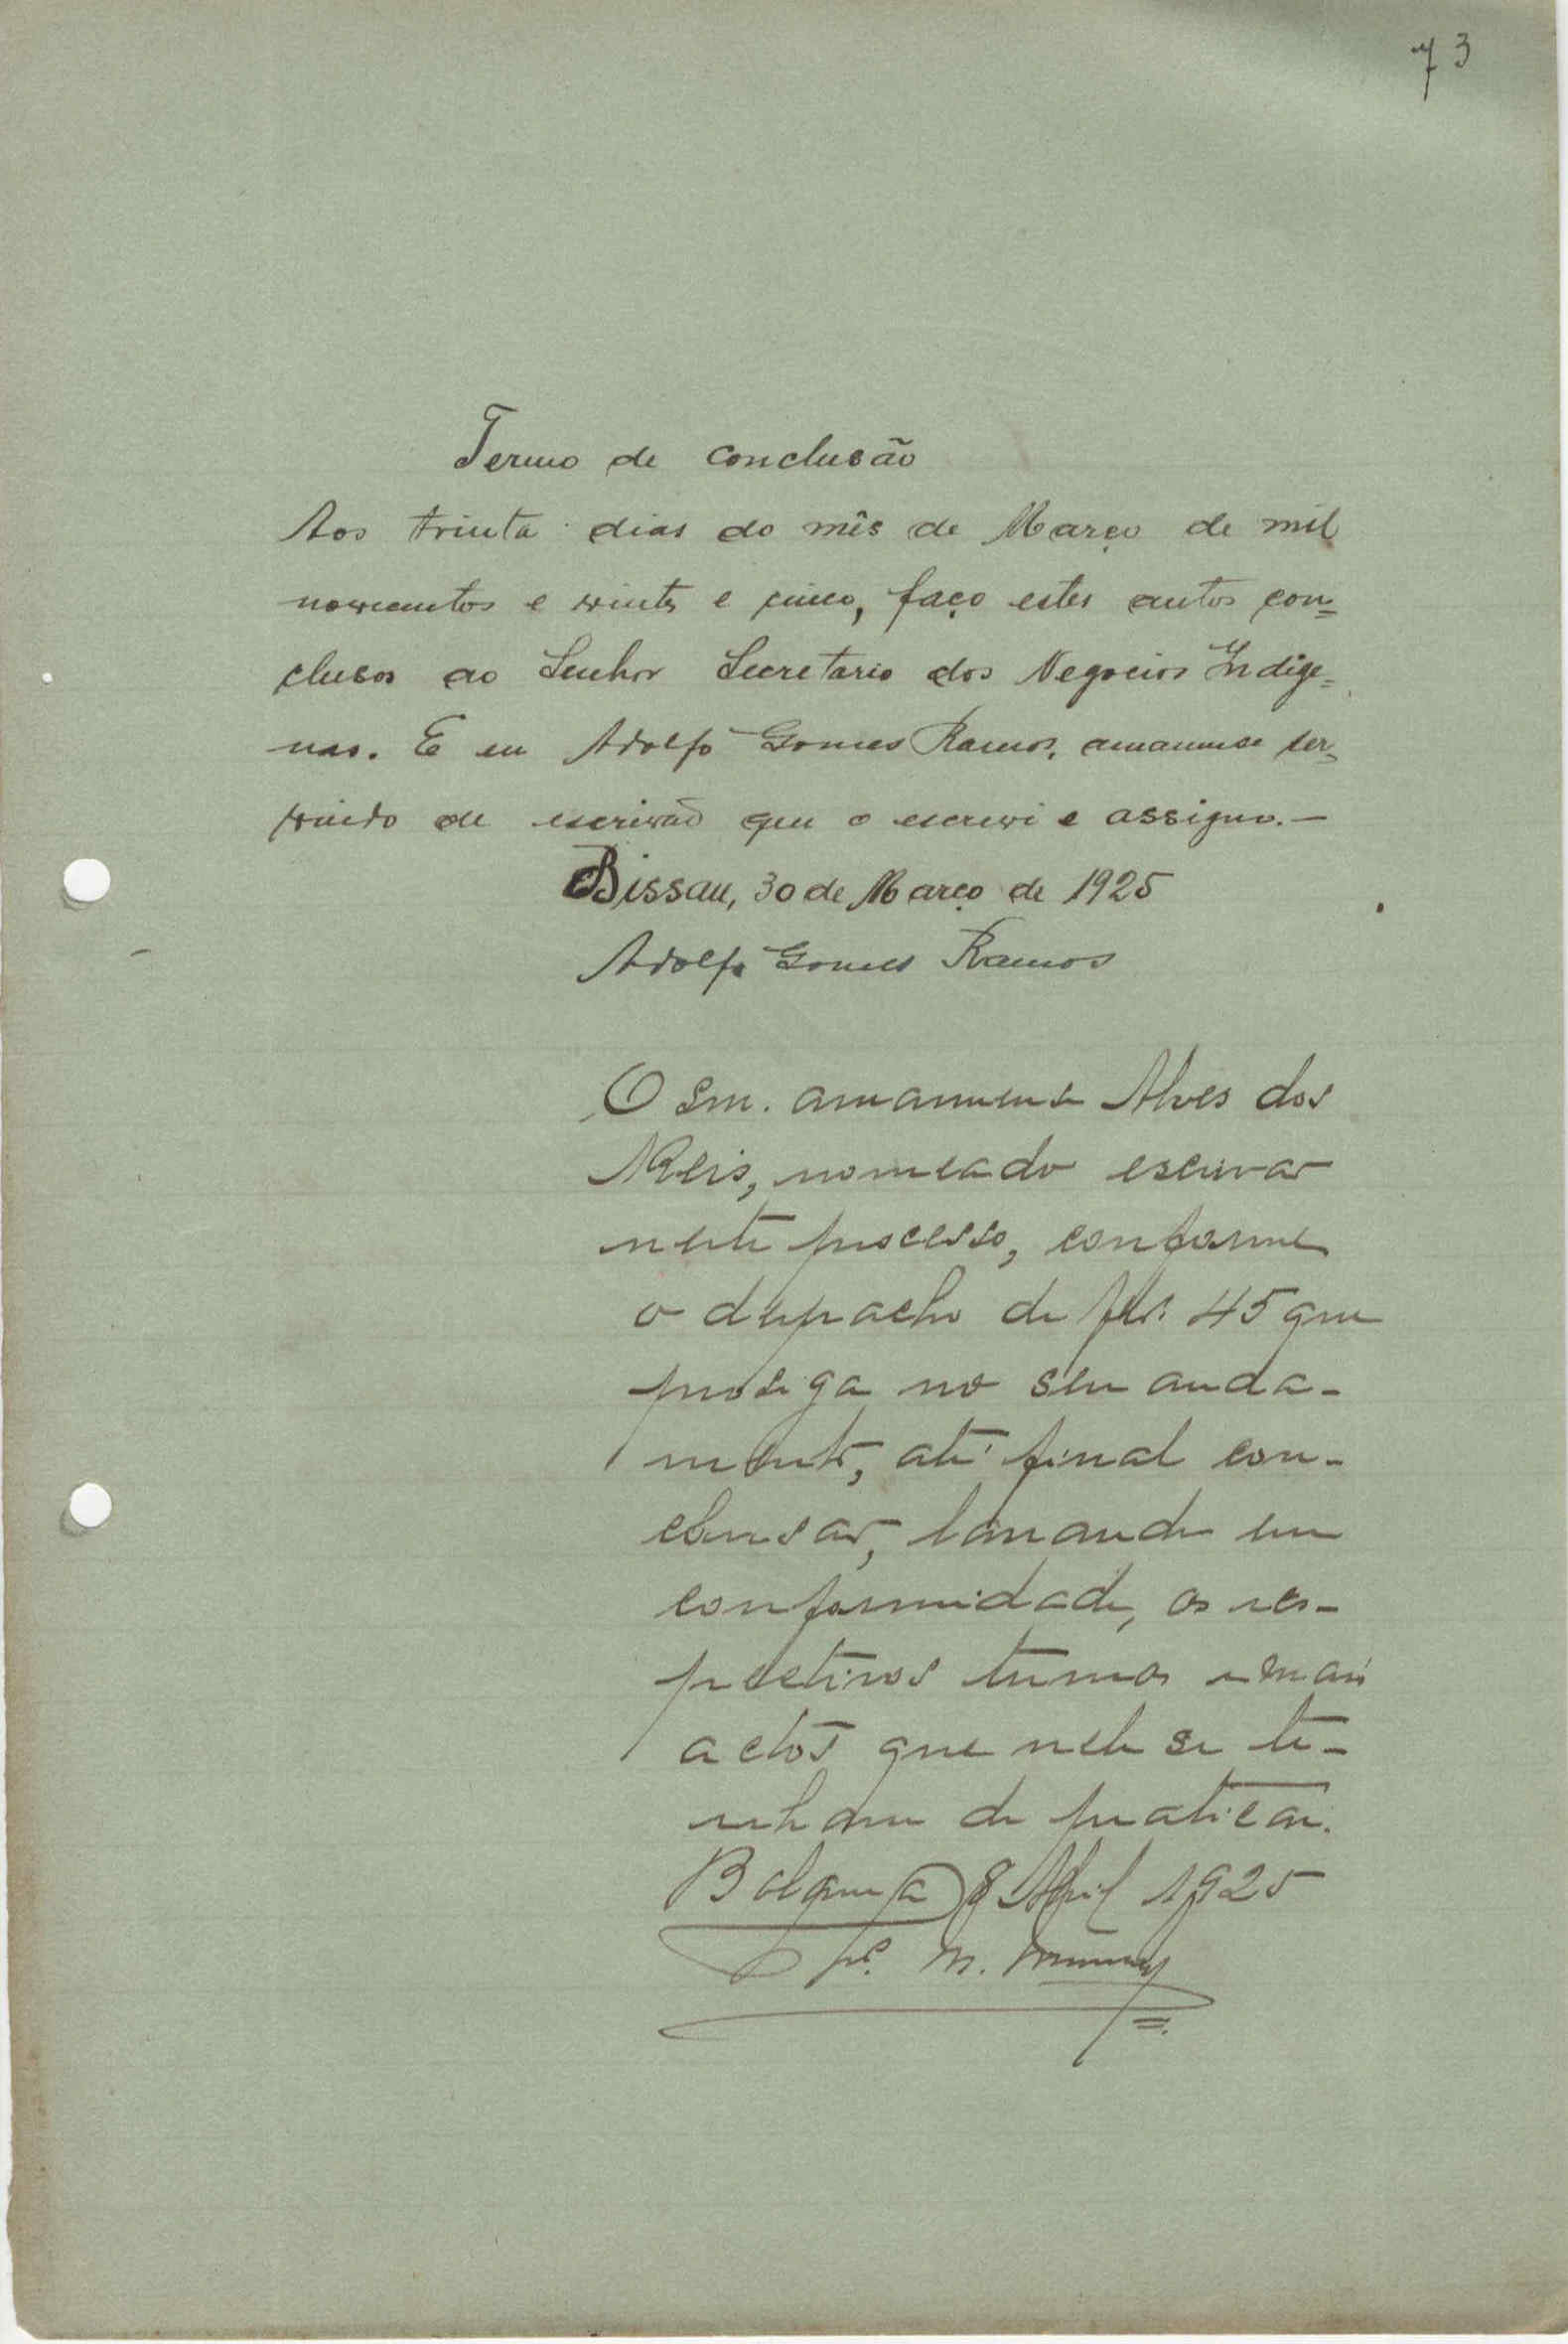 73
Termo de conclusão
Aos trinta dias do mês de Março de mil
novecentos e vinte e cinco, faço estes autos con=
clusos ao Senhor Secretario dos Negocios Indige=
nas. E eu Adolfo Gomes Ramos, amanuense ser=
vindo de escrivão que o escrevi e assigno.—
Bissau, 30 de Março de 1925
Adolfo Gomes Ramos
O Snr. amanuense Alves dos
Reis, nomeado escrivão
neste processo, conforme
o despacho de fls. 45 que
prosiga no seu anda-
mento, até final con-
clusão, lavrando em
conformidade, os res-
pectivos termos e mais
actos que nele se te-
nham de praticar.
Bolama 8 Abril 1925
M.